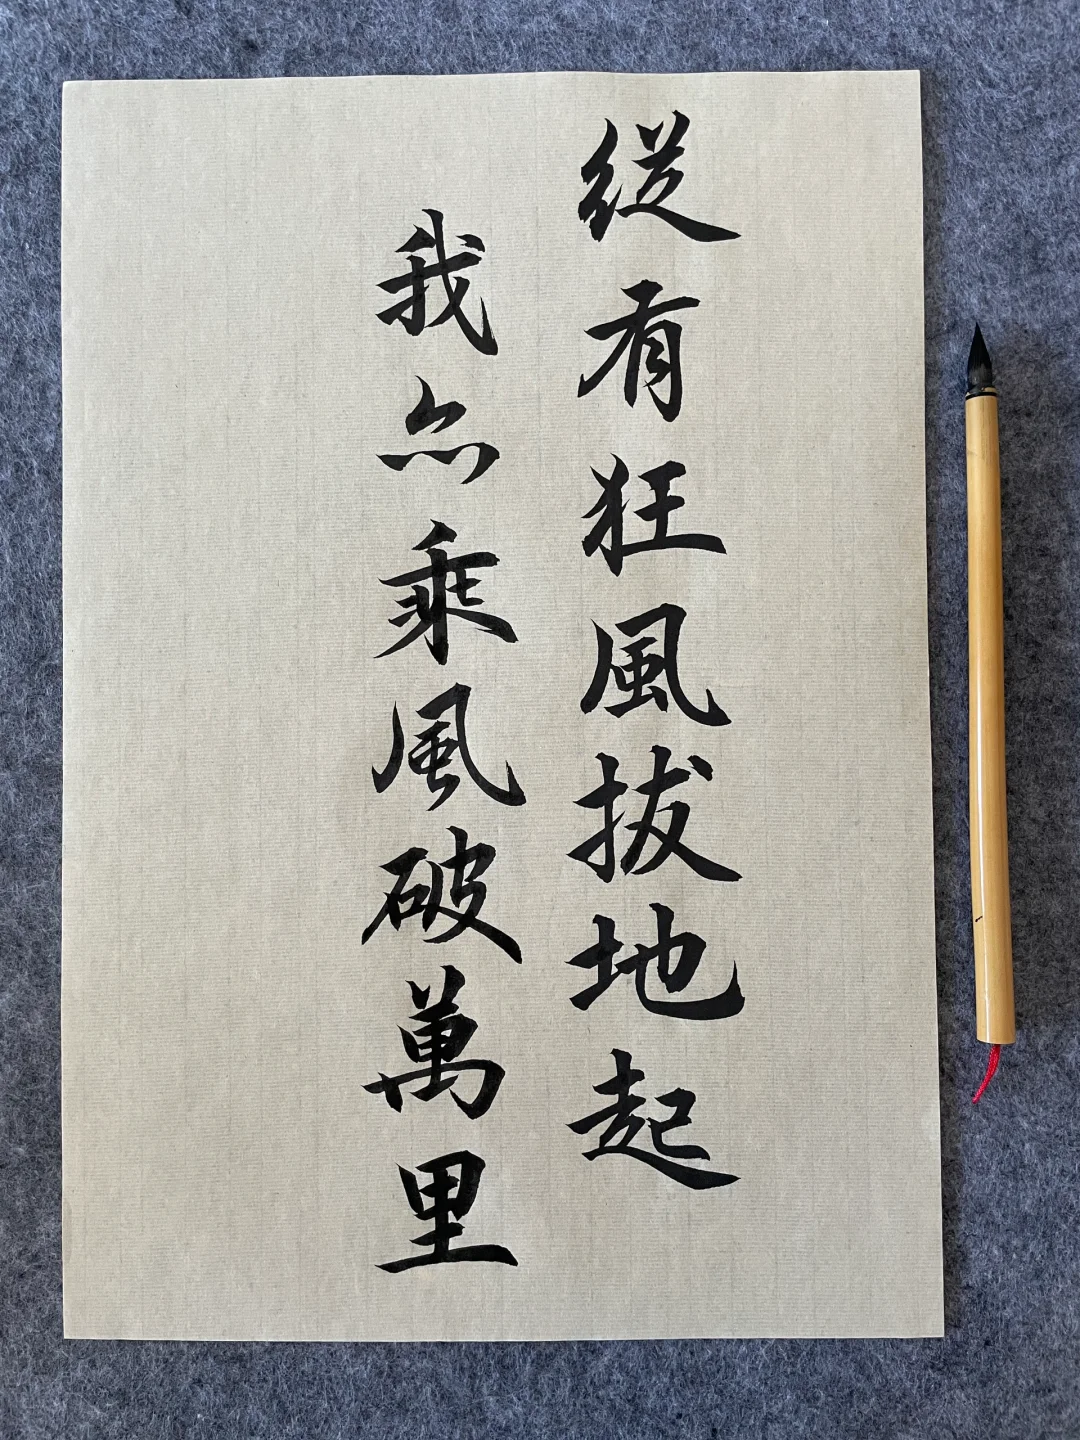 縱有狂風拔地起
我亦乘風破萬里